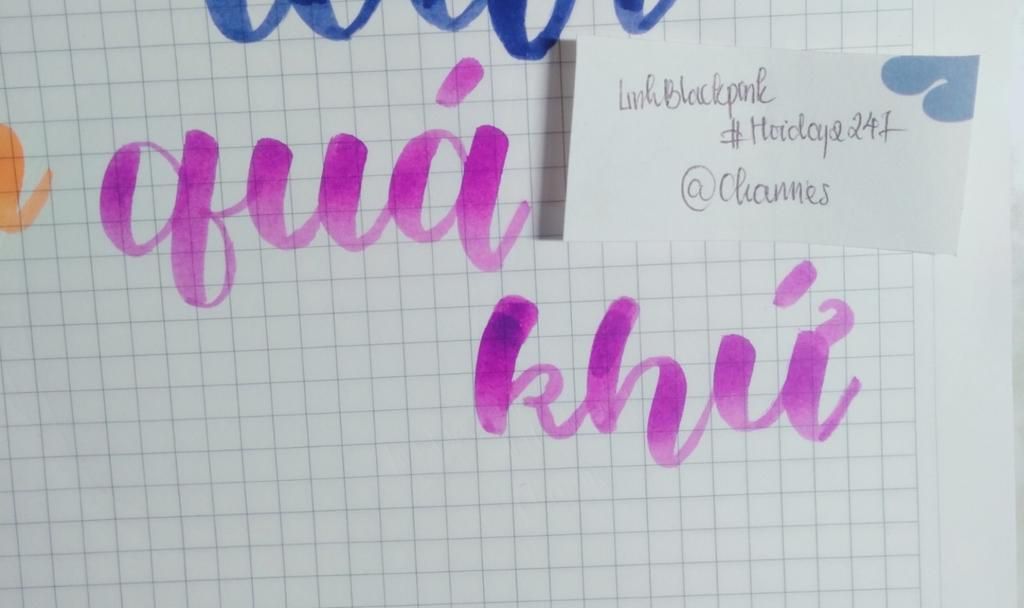 quá
LinhBlackpink
#Hoidap247
@Channes
khứ